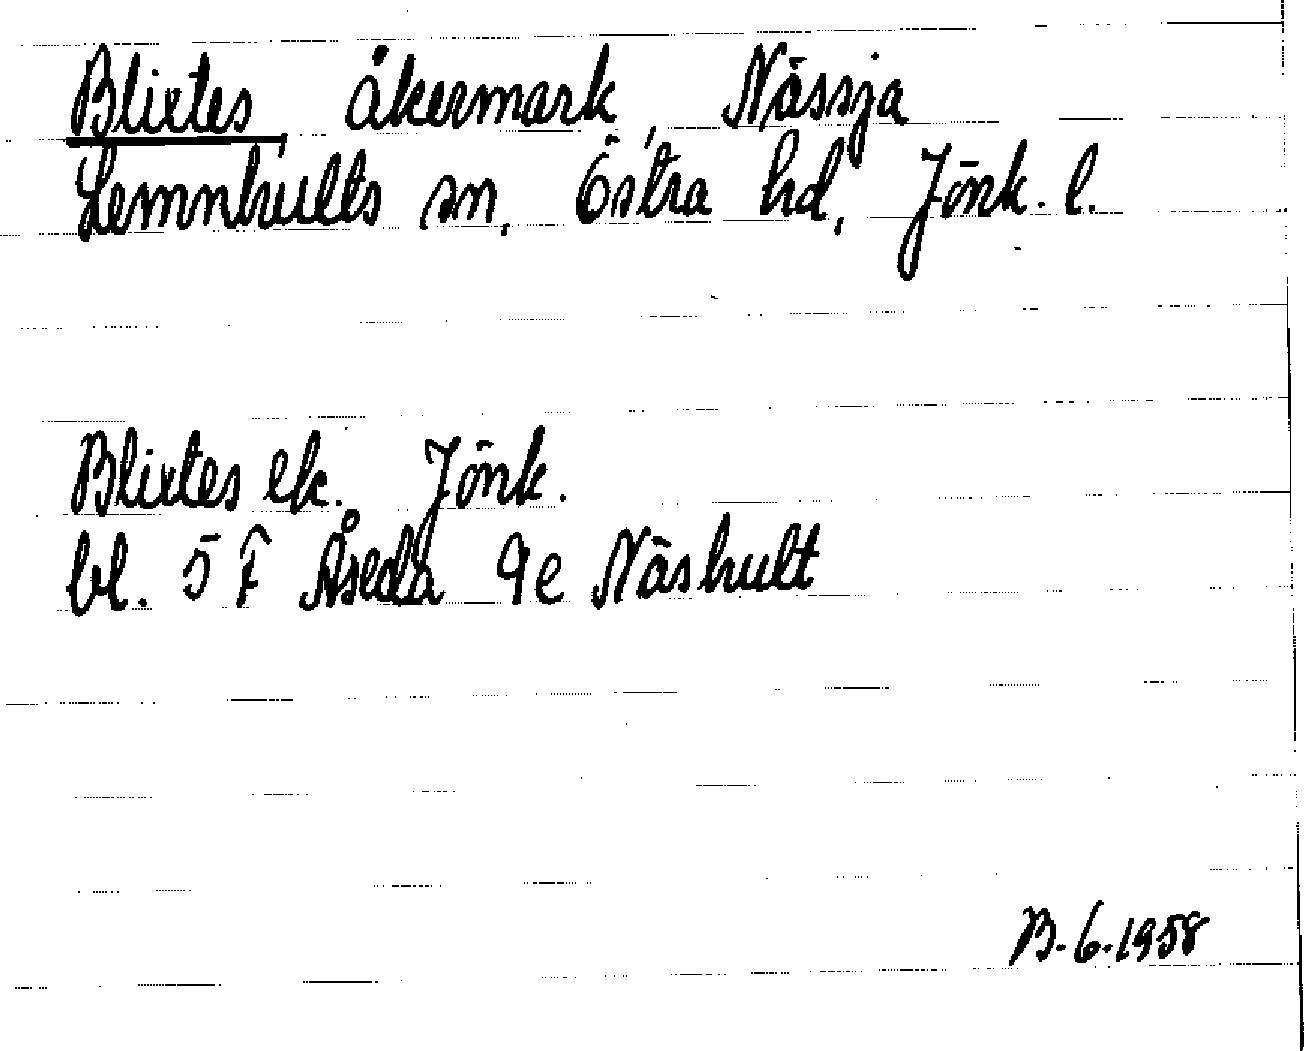 Blixtes, åkermark, Nässja
Lemnhults sn, Östra hd, Jönk. l.
Blixtes ek. Jönk.
bl. 5 F Åseda 9e Näshult
B.6.1958